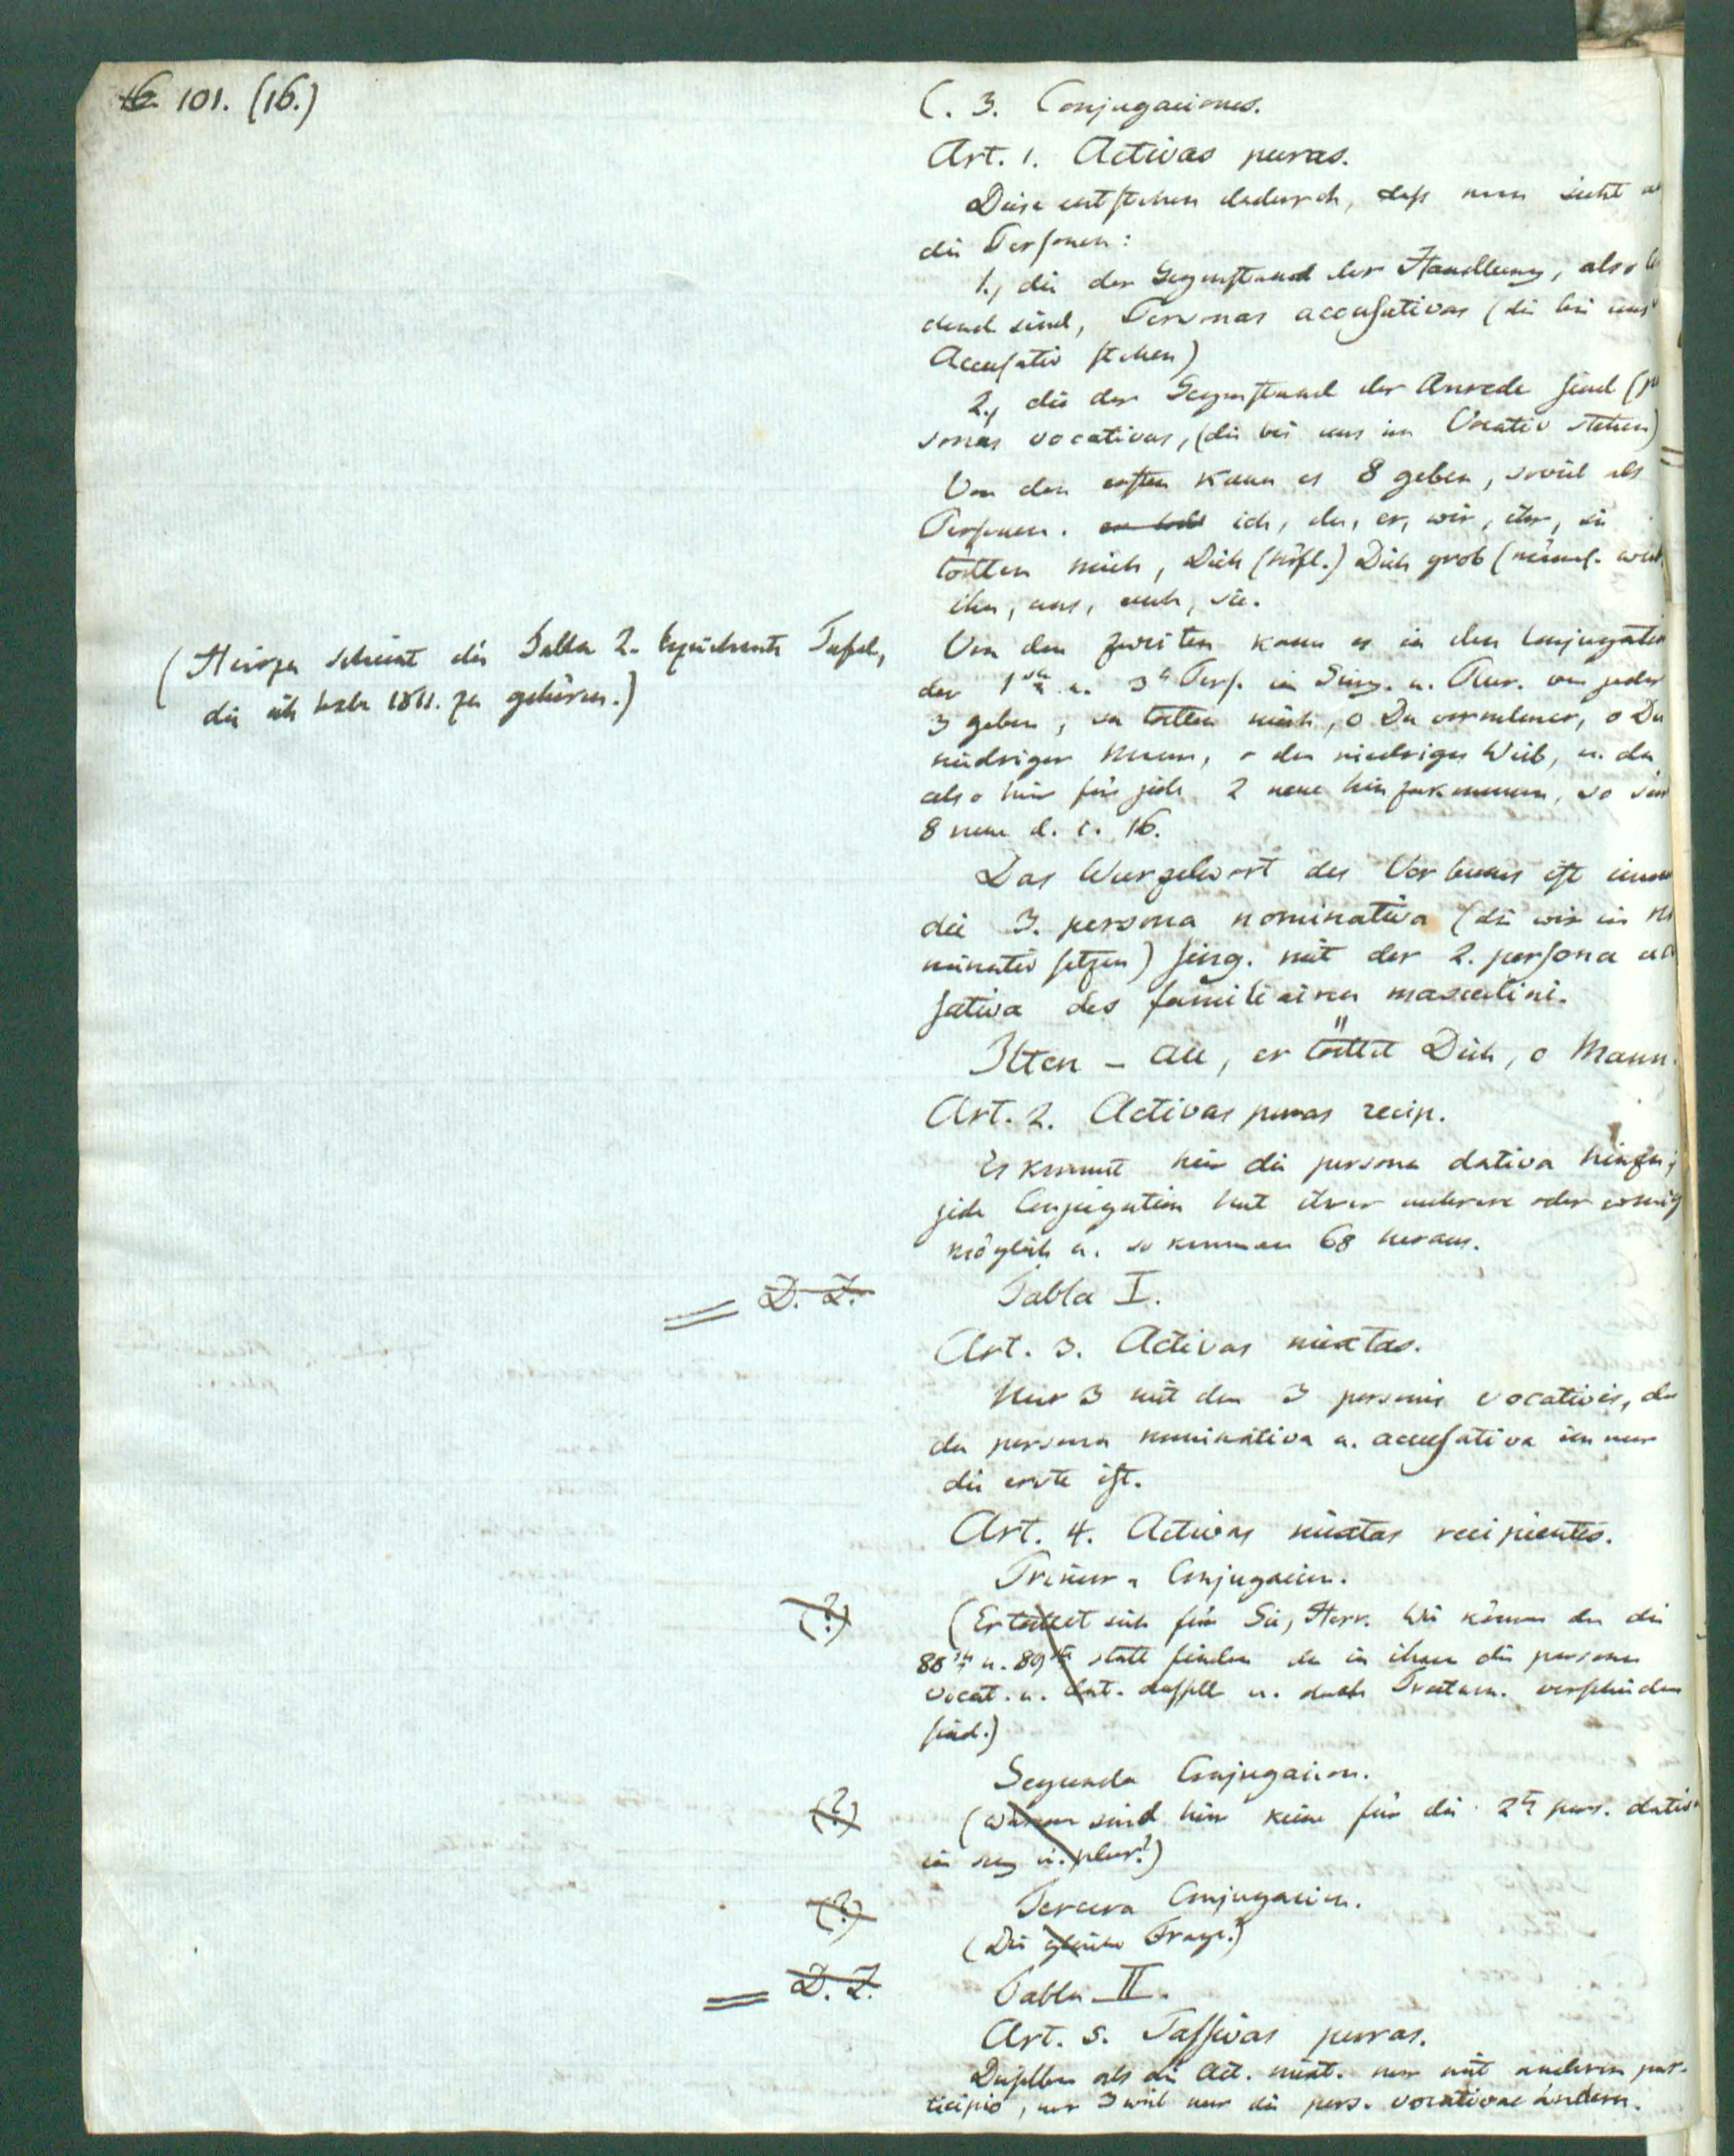 101. (16.)
C. 3. Conjugaciones.
Art. 1. Activas puras.
Diese entstehen dadurch, dass man sieht
die Personen:
1., die der Gegenstand der Handlung, also
dend sind, Personas accusativas (die bei uns
Accusativ stehen)
2., die der Gegenstand der Anrede sind
sonas vocativas, (die bei uns im Vocativ stehen)
Von den ersten kann es 8 geben, soviel als
Personen. ich, du, er, wir, ihr, sie
tödten mich, Dich (höfl.) Dich grob
ihn, uns, euch, sie.
(Hierzu scheint die Tabla 2. bezeichnete Tafel,
die ich habe 1811. zu gehören.)
Von den zweiten kann es in den Conjugatio
der 1sten u. 3n Pers. in Sing. u. Plur. von jeder
3 geben, sie tödten mich, o Du vornehmer, o Du
niedriger Mann, o du niedriges Weib, u. da
also hier für jede 2 neue hinzukommen, so sin
8 neue d. i. 16.
Das Wurzelwort des Verbums ist imm
die 3. persona nominativa (die wir im No
minativ setzen) sing. mit der 2. persona acc
sativa des familiairen masculini.
Ilten - au, er tödtet Dich, o Mann.
Art. 2. Activas puras recip.
Es kommt hier die persona dativa hinzu;
jede Conjugation hat ihrer mehrere oder wenig
möglich u. so kommen 68 heraus.
D. Z.
Tabla I.
Art. 3. Activas mixtas.
Nur 3 mit den 3 personis vocativis, da
die persona nominativa u. accusativa immer
die erste ist.
Art. 4. Activas mixtas recipientes.
Primera Conjugacion.
(?)
(Er tödtet sich für Sie, Herr. Wie können da die
88ste u. 89ste statt finden da in ihnen die persona
vocat. u. dat. dasselbe u. doch verschieden
sind.)
Segunda Conjugacion.
(?)
(Warum sind hier keine für die 2te pers. dativa
in sing u. plur?)
Tercera Conjugacion.
(?)
(Die gleiche Frage.)
D. Z.
Tabla II.
Art. 5. Passivas puras.
Dieselben als die Act. mixt. nur mit anderem par-
ticipio, nur 3 weil nur die pers. vocativae ändern.